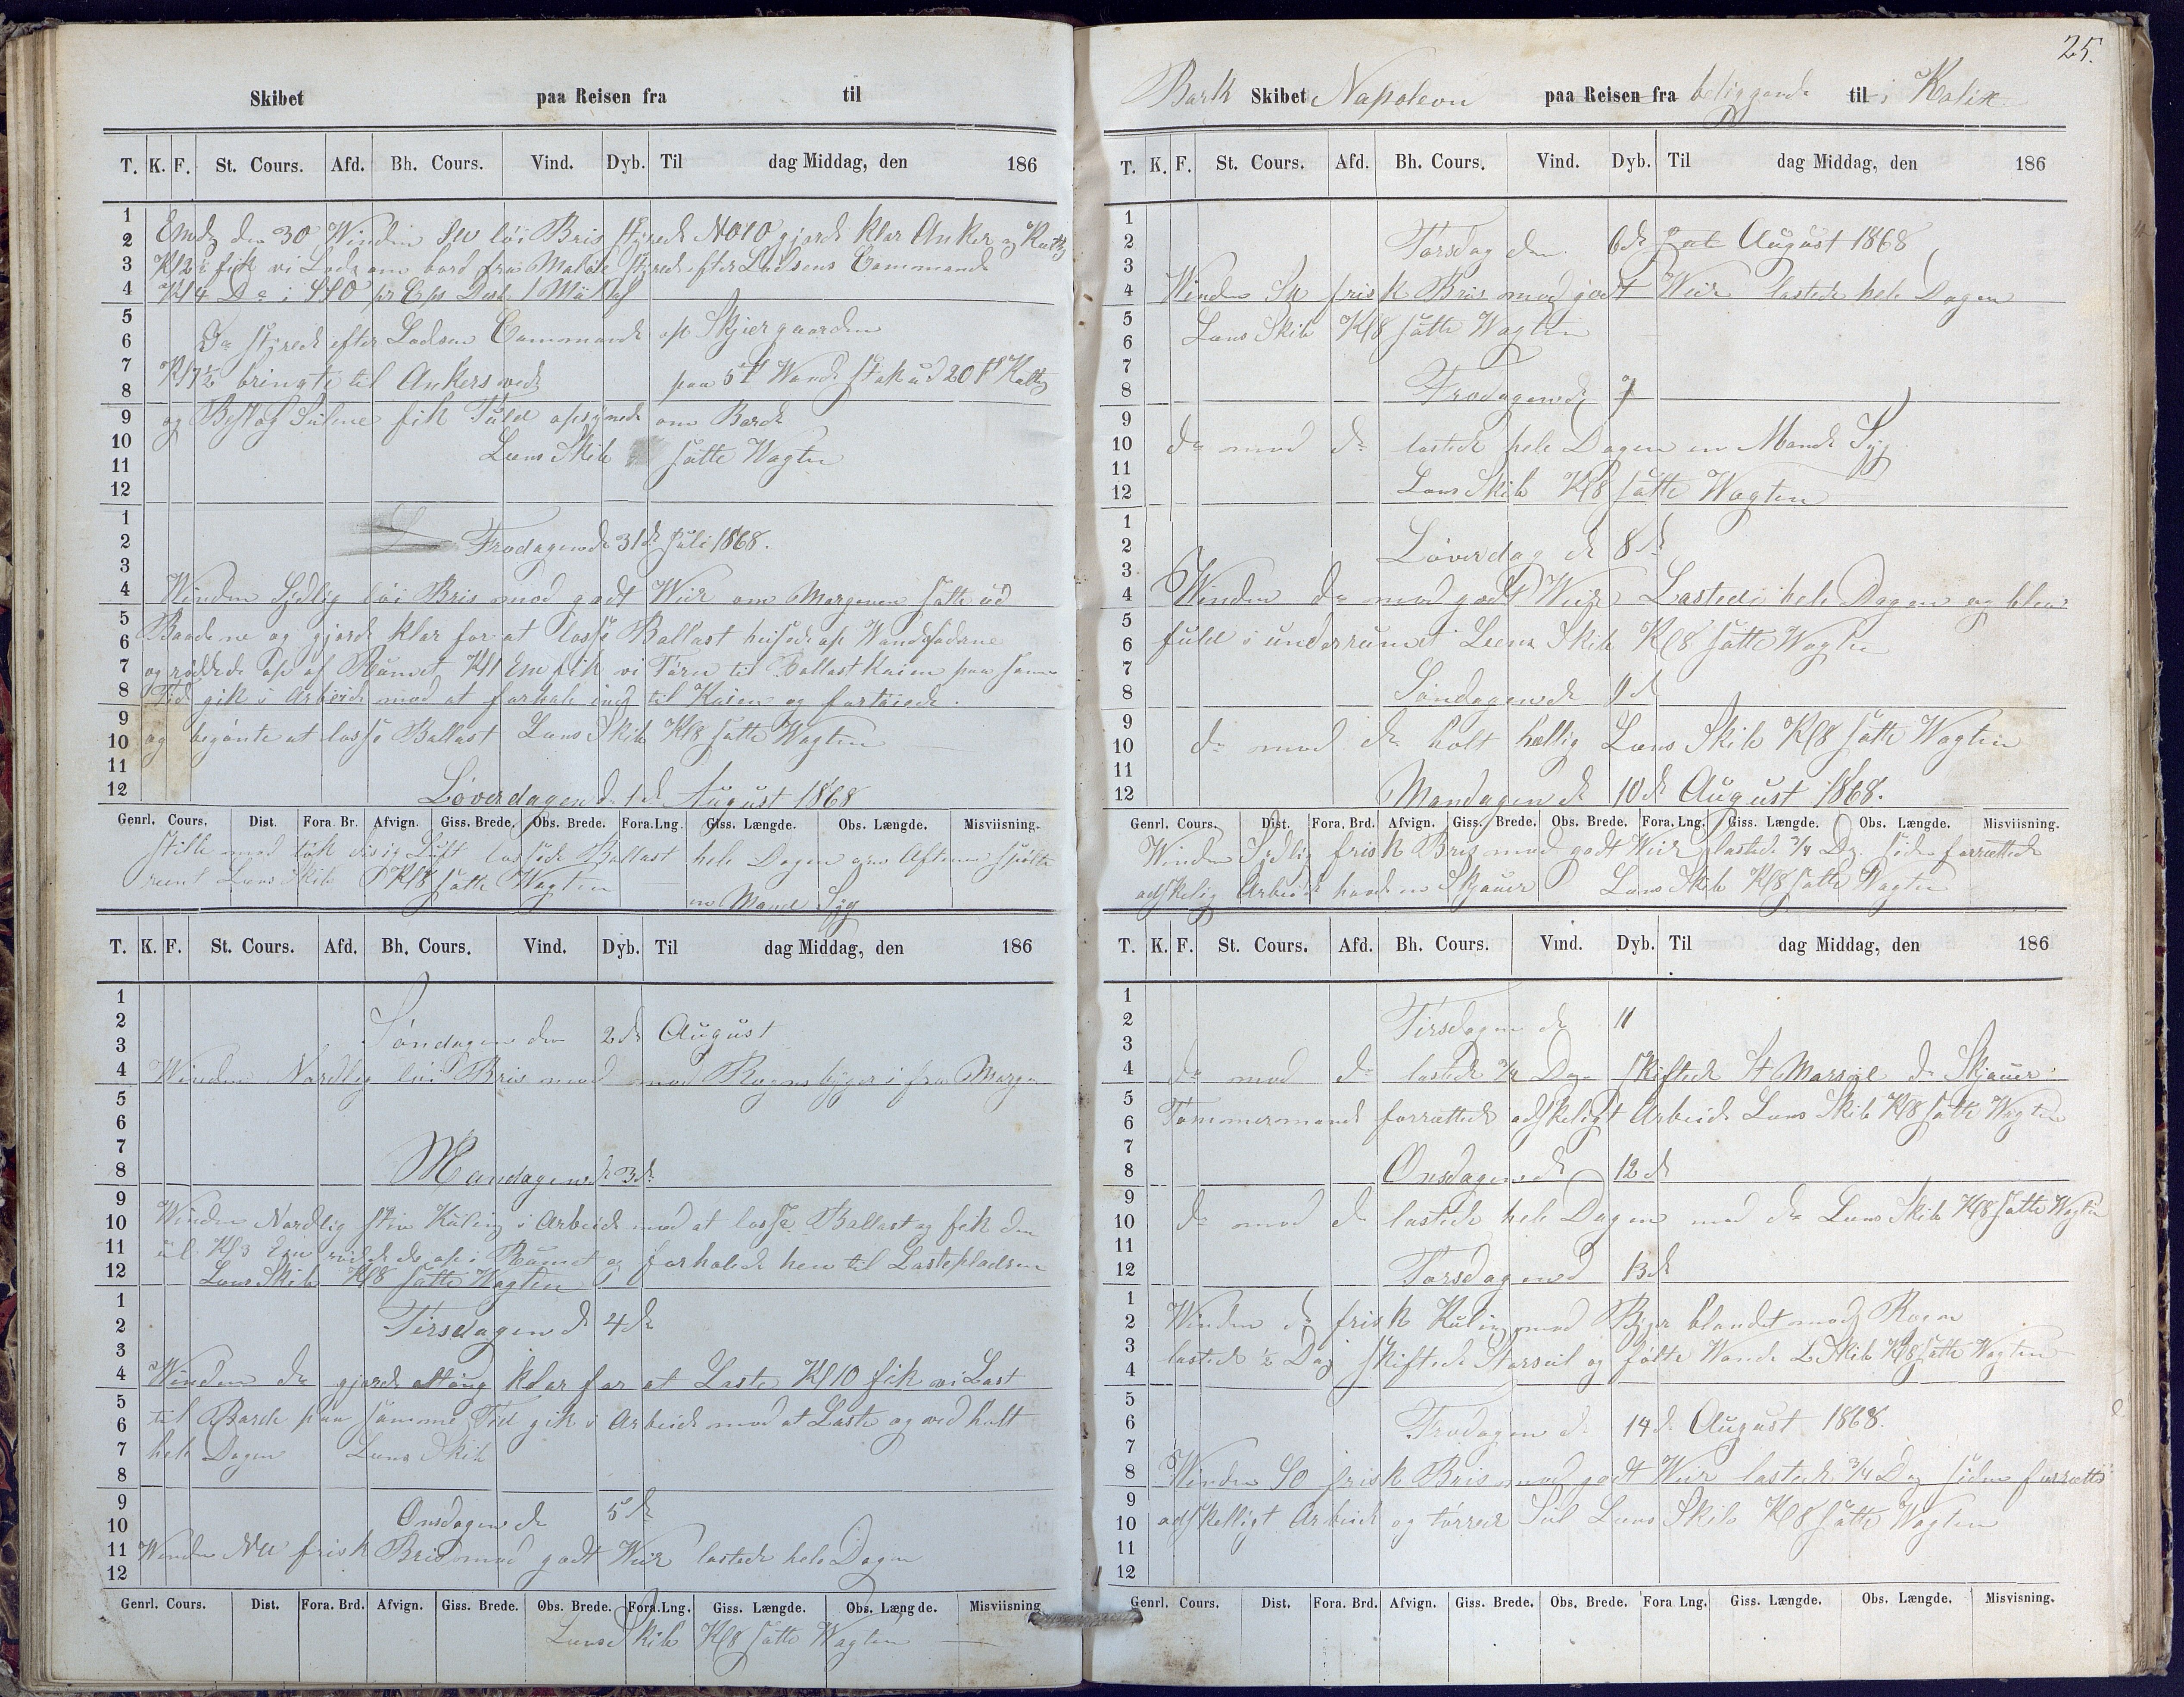 Skibet paa Reisen fra til
T. K. F. St. Cours. Afd. Bh. Cours. Vind. Dyb. Til dag Middag, den 186
1
2
3
4
5
6
7
8
9
10
11
12
Emdg den 30 Winden SW løi Bris styrede gjorde klar Anker og
Kl 2½ fik vi Lods om bord fra Maløe styrede efter Lodsens Commando
Kl 4
Da styrede efter Lodsens Commando op Skjergaarden
Kl 7½ bringte til Ankers med paa 5 Wand stak ud 20
og fik om Bord
Lens Skib satte Wagten
1
2
3
4
5
6
7
8
9
10
11
12
Fredagen d 31d Juli 1868.
Winden Sydlig løi Bris med godt Weir om Morgenen satte ud
Baadene og gjorde klar for at losse Ballast heisede op Wandfadene
og op af Rümet Kl 1 Em fik vi Tørn til Ballast Kaien paa samme
Tid gik i Arbeide med at forhale ind til Kaien og fortøiede.
og begønte at losse Ballast Lens Skib Kl 8 satte Wagten
Løverdagen d. 1d August 1868
Genrl. Cours. Dist. Fora. Br. Afvign. Giss. Brede. Obs. Brede. Fora.Lng. Giss. Længde. Obs. Længde. Misviisning.
Stille med tøk disig Luft lossede Ballast hele Dagen om Aftenen spülte
reent Lens Skib Kl 8 satte Wagten
en Mand Syg
T. K. F. St. Cours. Afd. Bh. Cours. Vind. Dyb. Til dag Middag, den 186
1
2
3
4
5
6
7
8
9
10
11
12
Søndagen den 2d August
Winden Nordlig løi Bris med med Regnbyger i fra Morgen
Mandagen d 3d
Winden Nordlig stiv Küling i Arbeide med at losse Ballast og fik den
ud Kl 3 Em op i Rümet og forhalede hen til Lastepladsen
Lens Skib Kl 8 satte Wagten
1
2
3
4
5
6
7
8
9
10
11
12
Tirsdagen d 4d
Winden do gjorde alting klar for at Laste Kl 10 fik vi Last
til Borde paa samme Tid gik i Arbeide med at Laste og ved holt
hele Dagen Lens Skib
Onsdagen d 5d
Winden NW frisk Bris med godt Weir lastede hele Dagen
Genrl. Cours. Dist. Fora. Brd. Afvign. Giss. Brede. Obs. Brede. Fora.Lng. Giss. Længde. Obs. Længde. Misviisning
Lens Skib Kl 8 satte Wagten
25.
Bark Skibet Napoleon paa Reisen fra beliggende til i Kalix
T. K. F. St. Cours. Afd. Bh. Cours. Vind. Dyb. Til dag Middag, den 186
1
2
3
4
5
6
7
8
9
10
11
12
Torsdag den 6d August 1868
Winden frisk Bris med godt Weir lastede hele Dagen
Lens Skib Kl 8 satte Wagten
Fredagen d 7
do med do lastede hele Dagen en Mand Syg
Lens Skib Kl 8 satte Wagten
1
2
3
4
5
6
7
8
9
10
11
12
Løverdag d 8d
Winden do med godt Weir Lastede hele Dagen og blev
fuld i underrumet Lens Skib Kl 8 satte Wagten
Søndagen d 9d
do med do holt hellig Lens Skib Kl 8 satte Wagten
Mandagen d 10d August 1868.
Genrl. Cours. Dist. Fora. Brd. Afvign. Giss. Brede. Obs. Brede. Fora. Lng. Giss. Længde. Obs. Længde. Misviisning.
Winden Sydlig frisk Bris med godt Weir lastede ¾ Dg siden forrettede
adskelig Arbeide havde en Skjauer Lens Skib Kl 8 satte Wagten
T. K. F. St. Cours. Afd. Bh. Cours. Vind. Dyb. Til dag Middag, den 186
1
2
3
4
5
6
7
8
9
10
11
12
Tirsdagen d 11
do med do lastede ¾ Dag skiftede St Marseil do Skjauer
Tømmermand forrettede adskeligt Arbeide Lens Skib Kl 8 satte Wagten
Onsdagen d 12d
do med do lastede hele Dagen med do Lens Skib Kl 8 satte Wagten
Torsdagen d 13d
1
2
3
4
5
6
7
8
9
10
11
12
Winden do frisk Küling med Byger blandet med Regn
lastede ½ Dag skiftede og følte Wande L Skib Kl 8 satte Wagten
Fredagen d 14d August 1868.
Winden SO frisk Bris med godt Weir lastede ¾ Dag siden forrette
adskelligt Arbeide og tørrede Seil Lens Skib Kl 8 satte Wagten
Genrl. Cours. Dist. Fora. Brd. Afvign. Giss. Brede. Obs. Brede. Fora Lng. Giss. Længde. Obs. Længde. Misvisning.